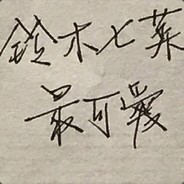 鈴木七葉
最可愛